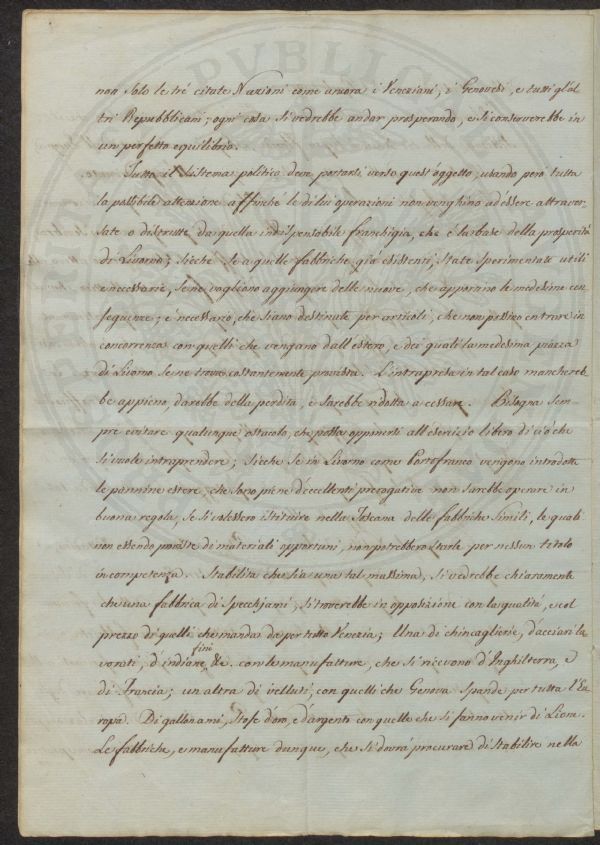 non solo le trè citate Nazioni come ancora i Veneziani, i Genovesi, e tutti gl'al
tri Repubblicani; ogni cosa si vedrebbe andar prosperando, e si conserverebbe in
un perfetto equilibrio.
Tutto il sistema politico deve portarsi verso quest'oggetto, usando però tutta
la possibile attenzione affinchè le di lui operazioni non venghino ad essere attraver-
sate o distrutte da quella indispensabile franchigia, che è la base della prosperità
di Livorno; sicche se a quelle fabbriche già esistenti, state sperimentate utili
e necessarie, se ne vogliono aggiungere delle nuove, che apportino le medesime con-
seguenze; è necessario, che siano destinate per articoli, che non possino entrare in
concorrenza con quelli che vengano dall'estero, e dei quali la medesima piazza
di Livorno se ne trova costantemente provvista. L'intrapresa in tal caso mancereb-
be appieno, darebbe della perdita, e sarebbe ridotta a cessare. Bisogna sem-
pre evitare qualunque ostacolo, che possa opponersi all'esercizio libero di ciò che
si vuole intraprendere; sicche se in Livorno come Portofranco vengono introdotte
le pannine estere, che sono piene d'eccellenti prerogative non sarebbe operare in
buona regola, se si volessero istituire nella Toscana delle fabbriche simili, le quali
non essendo provviste di materiali opportuni, non potrebbero starle per nessun titolo
in competenza. Stabilita che sia una tal massima, si vedrebbe chiaramente
che una fabbrica di Specchjami, si troverebbe in opposizione con la qualità, e col
prezzo di quelli che manda da per tutto Venezia; Una di chincaglierie, d'acciari la
vorati, d'indiane fini &c. con le manufatture, che si ricevono d'Inghilterra, e
di Francia; un altra di velluti, con quelli che Genova spande per tutta l'Eu-
ropa. Di gallonami, stofe d'oro, e d'argento con quelle che si fanno venir di Lione.
Le fabbriche, e manufatture dunque, che si dovrà procurare di stabilire nella